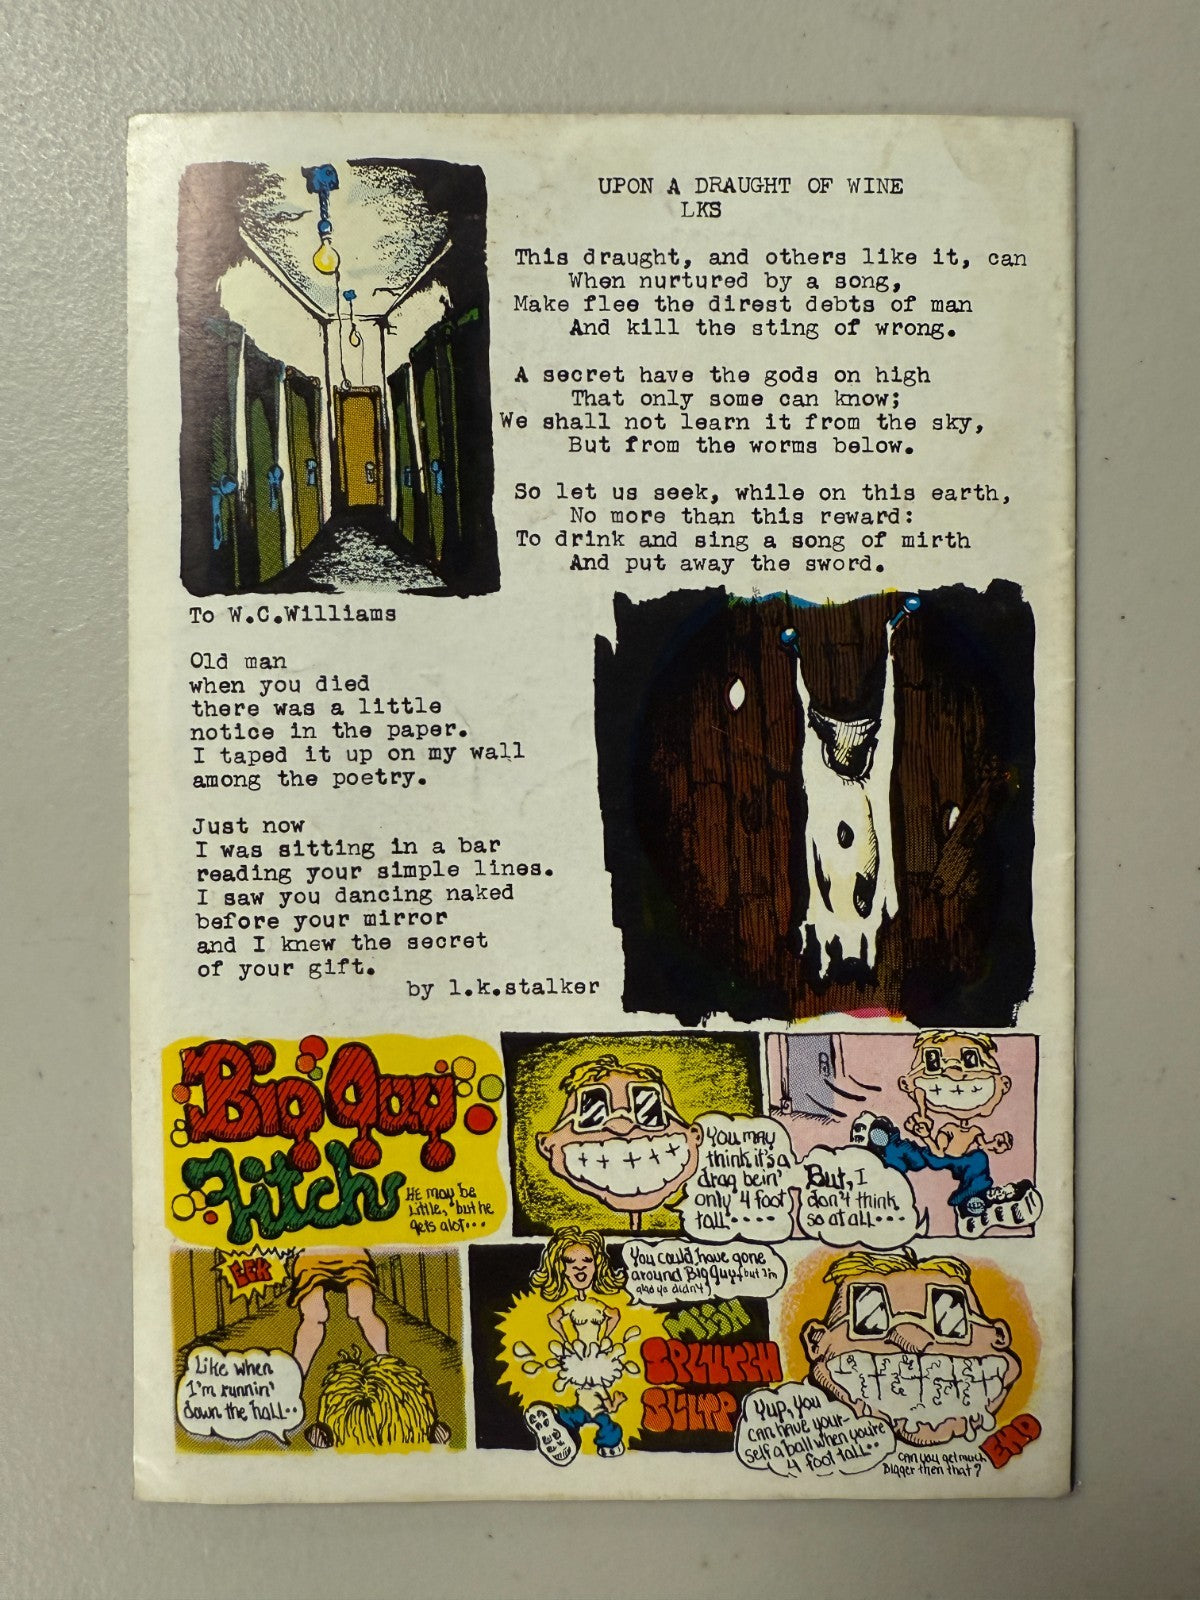 UPON A DRAUGHT OF WINE
LKS
This draught, and others like it, can
When nurtured by a song,
Make flee the direst debts of man
And kill the sting of wrong.
A secret have the gods on high
That only some can know;
We shall not learn it from the sky,
But from the worms below.
So let us seek, while on this earth,
No more than this reward:
To drink and sing a song of mirth
And put away the sword.
To W.C.Williams
Old man
when you died
there was a little
notice in the paper.
I taped it up on my wall
among the poetry.
Just now
I was sitting in a bar
reading your simple lines.
I saw you dancing naked
before your mirror
and I knew the secret
of your gift.
by l.k.stalker
Big Guy
Fitch
HE may be
Little, but he
gets alot...
You may
think it's a
drag bein'
only 4 foot
tall.....
But, I
don't think
so at all...
EEK
Like when
I'm runnin'
down the hall..
You could have gone
around Big guy, but I'm
glad ya didn't!
MISH
SPLUTCH
SLLRP
Yup, you
can have your-
self a ball when you're
4 foot tall..
can you get much
Bigger then that?
END